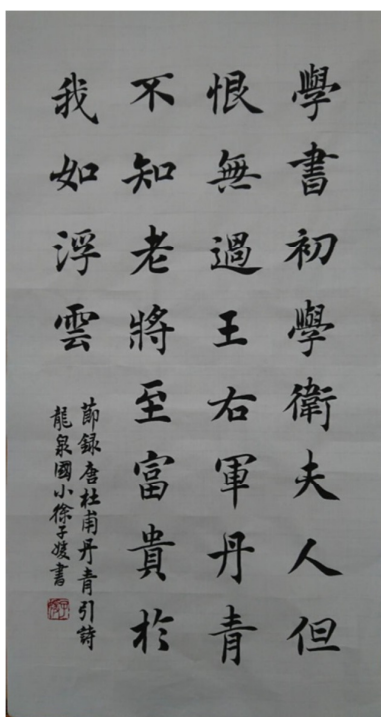 學書初學衛夫人但
恨無過王右軍丹青
不知老將至富貴於
我如浮雲
節録唐杜甫丹青引詩
龍泉國小徐子媛書